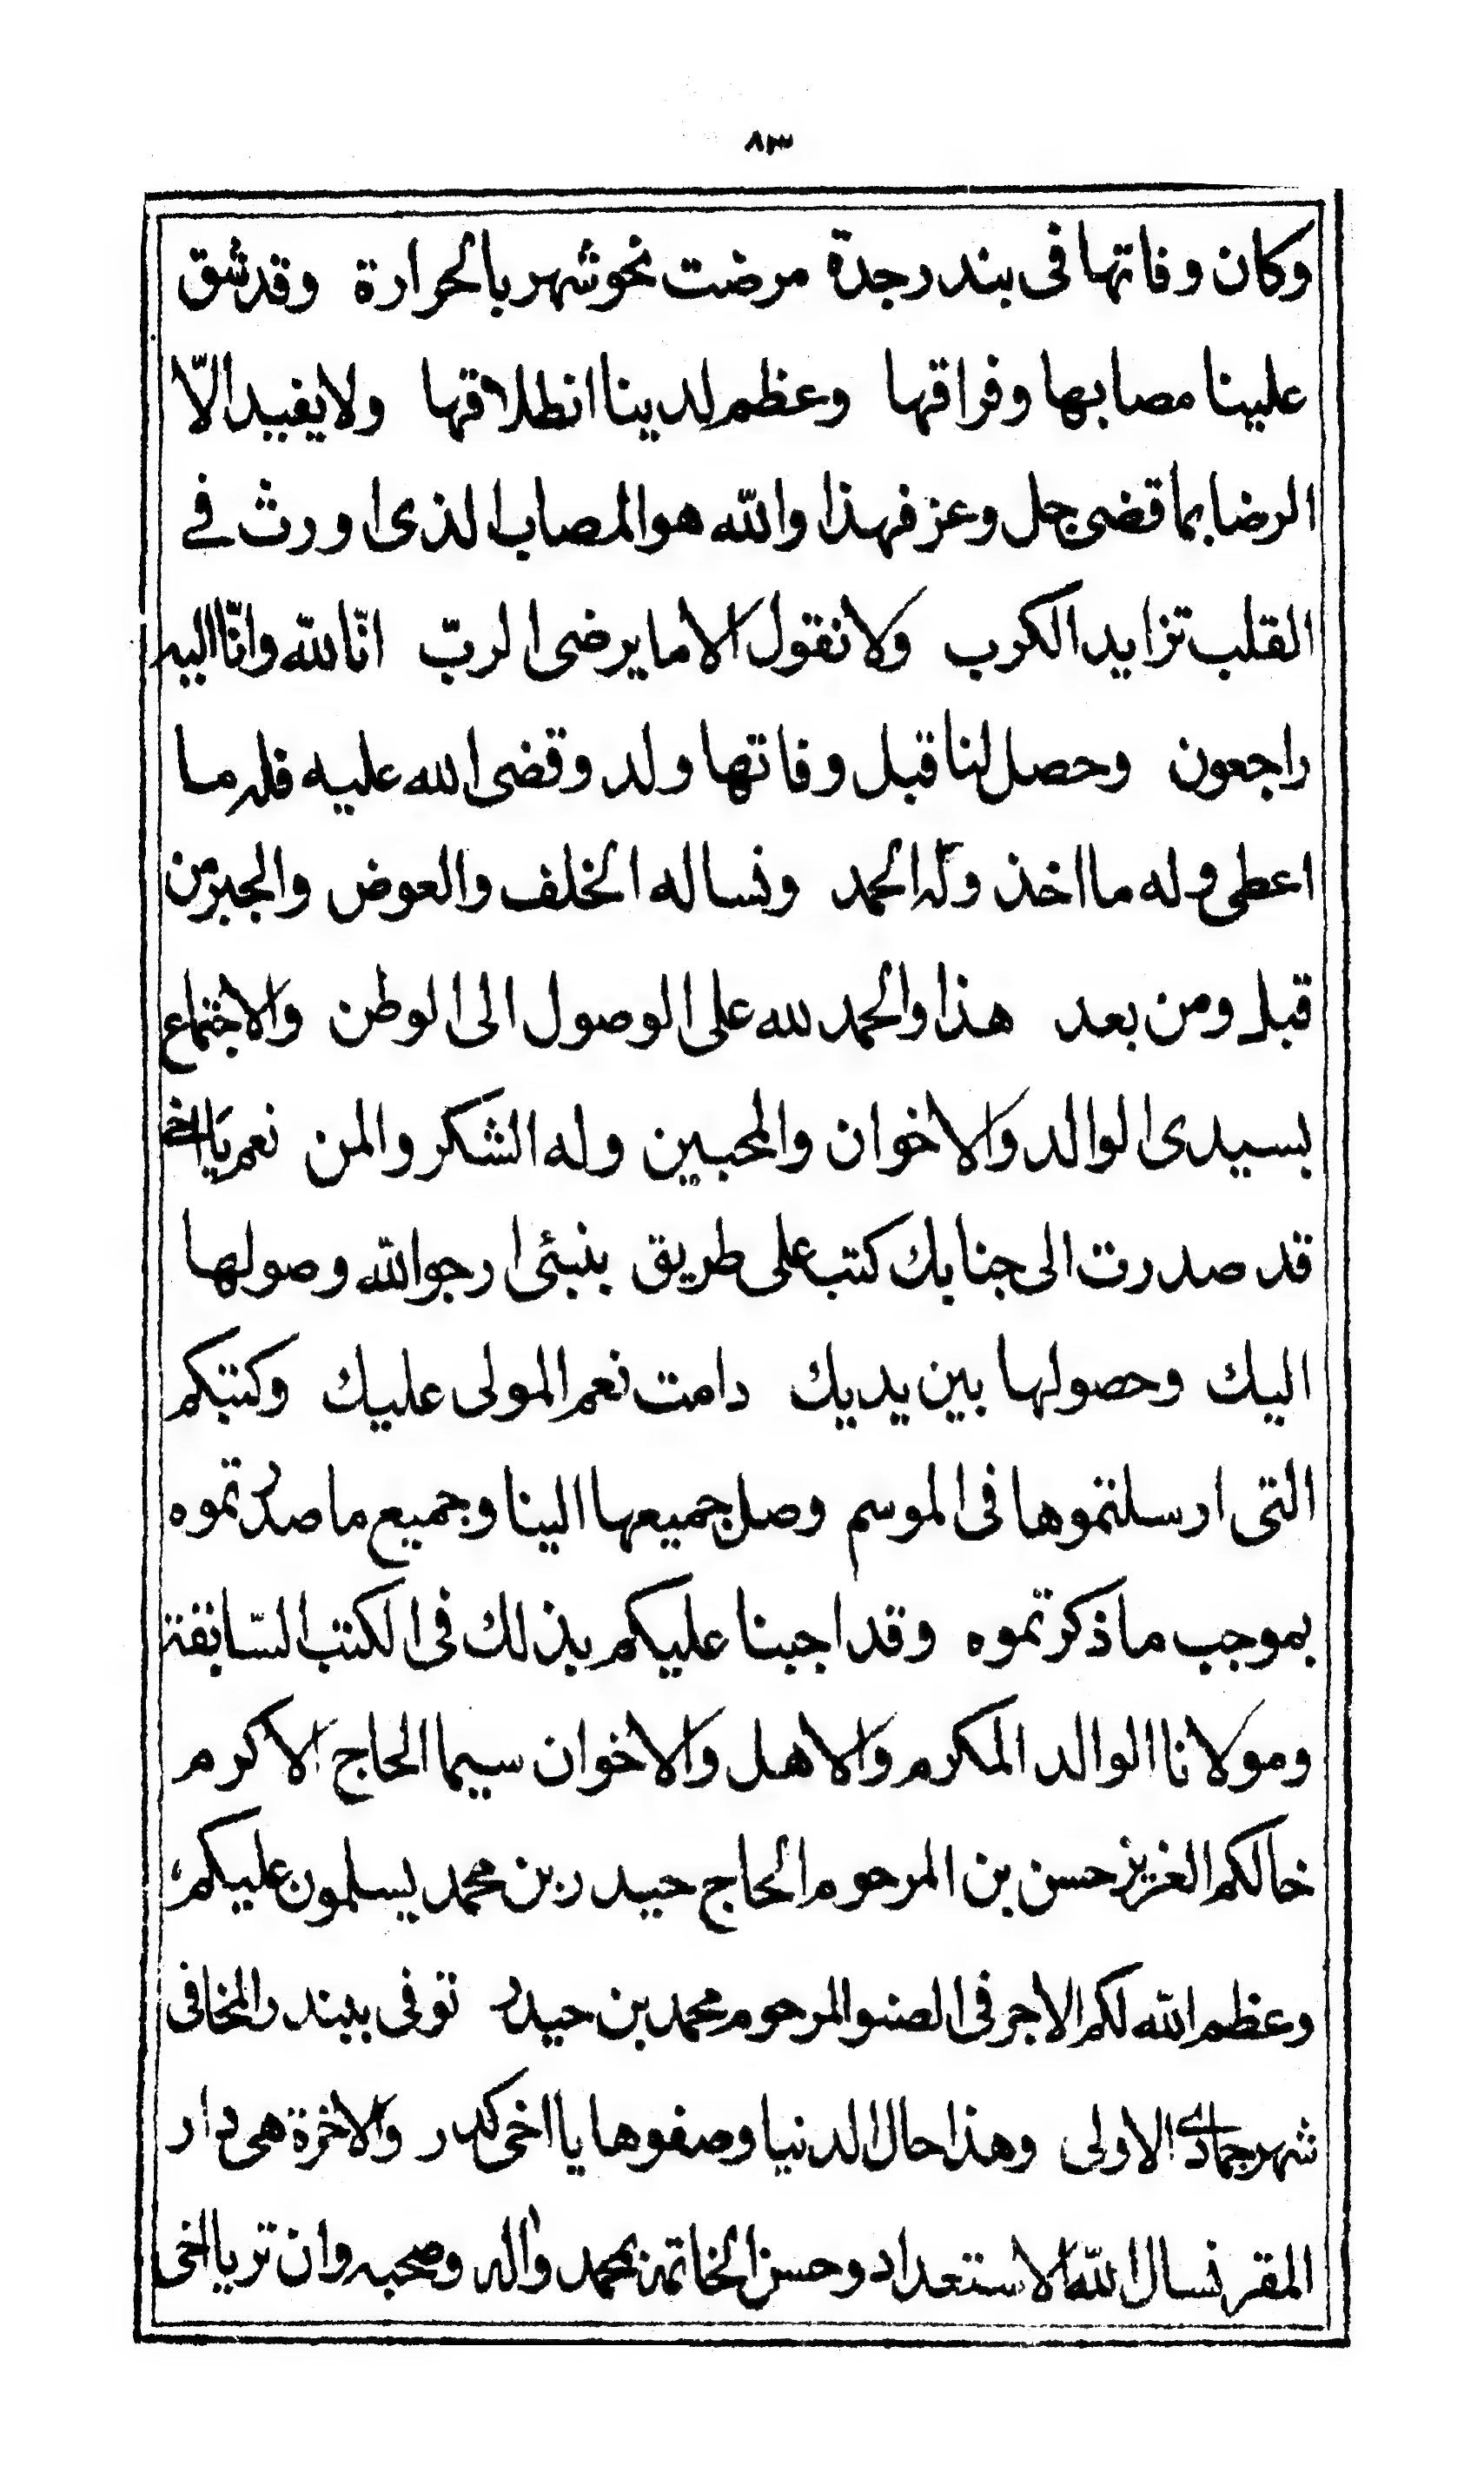 ٨٣
وكان وفاتها فى بندر جدة مرضت نحو شهر بالحرارة وقد شق
علينا مصابها وفراقها وعظم لدينا انطلاقها ولا يفيد الّا
الرضا بما قضى جل وعز فهذا والله هو المصاب الذى اورث فے
القلب تزايد الكرب ولا نقول الا ما يرضى الربّ انّا لله وانّا اليه
راجعون وحصل لنا قبل وفاتها ولد وقضى الله عليه فله ما
اعطى وله ما اخذ وله الحمد ونساله الخلف والعوض والجبر من
قبل ومن بعد هذا والحمد لله على الوصول الى الوطن والاجتماع
بسيدى الوالد والاخوان والمحبين وله الشكر والمن نعم يا اخے
قد صدرت الى جنابك كتب على طريق بنبئى ارجو الله وصولها
اليك وحصولها بين يديك دامت نعم المولى عليك وكتبكم
التى ارسلتموها فى الموسم وصل جميعها الينا وجميع ما صدرتموه
بموجب ما ذكرتموه وقد اجبنا عليكم بذلك فى الكتب السّابقة
ومولانا الوالد المكرم والاهل والاخوان سيما الحاج الاكرم
خالكم العزيز حسن بن المرحوم الحاج حيدر بن محمد يسلمون عليكم
وعظم الله لكم الاجر فى الصنو المرحوم محمد بن حيدر توفى ببندر المخا فى
شهر جمادى الاولى وهذا حال الدنيا وصفوها يا اخى كدر والاخرة هى دار
المقر نسال الله الاستعداد وحسن الخاتمة بمحمد واله وصحبه وان تر يا اخى